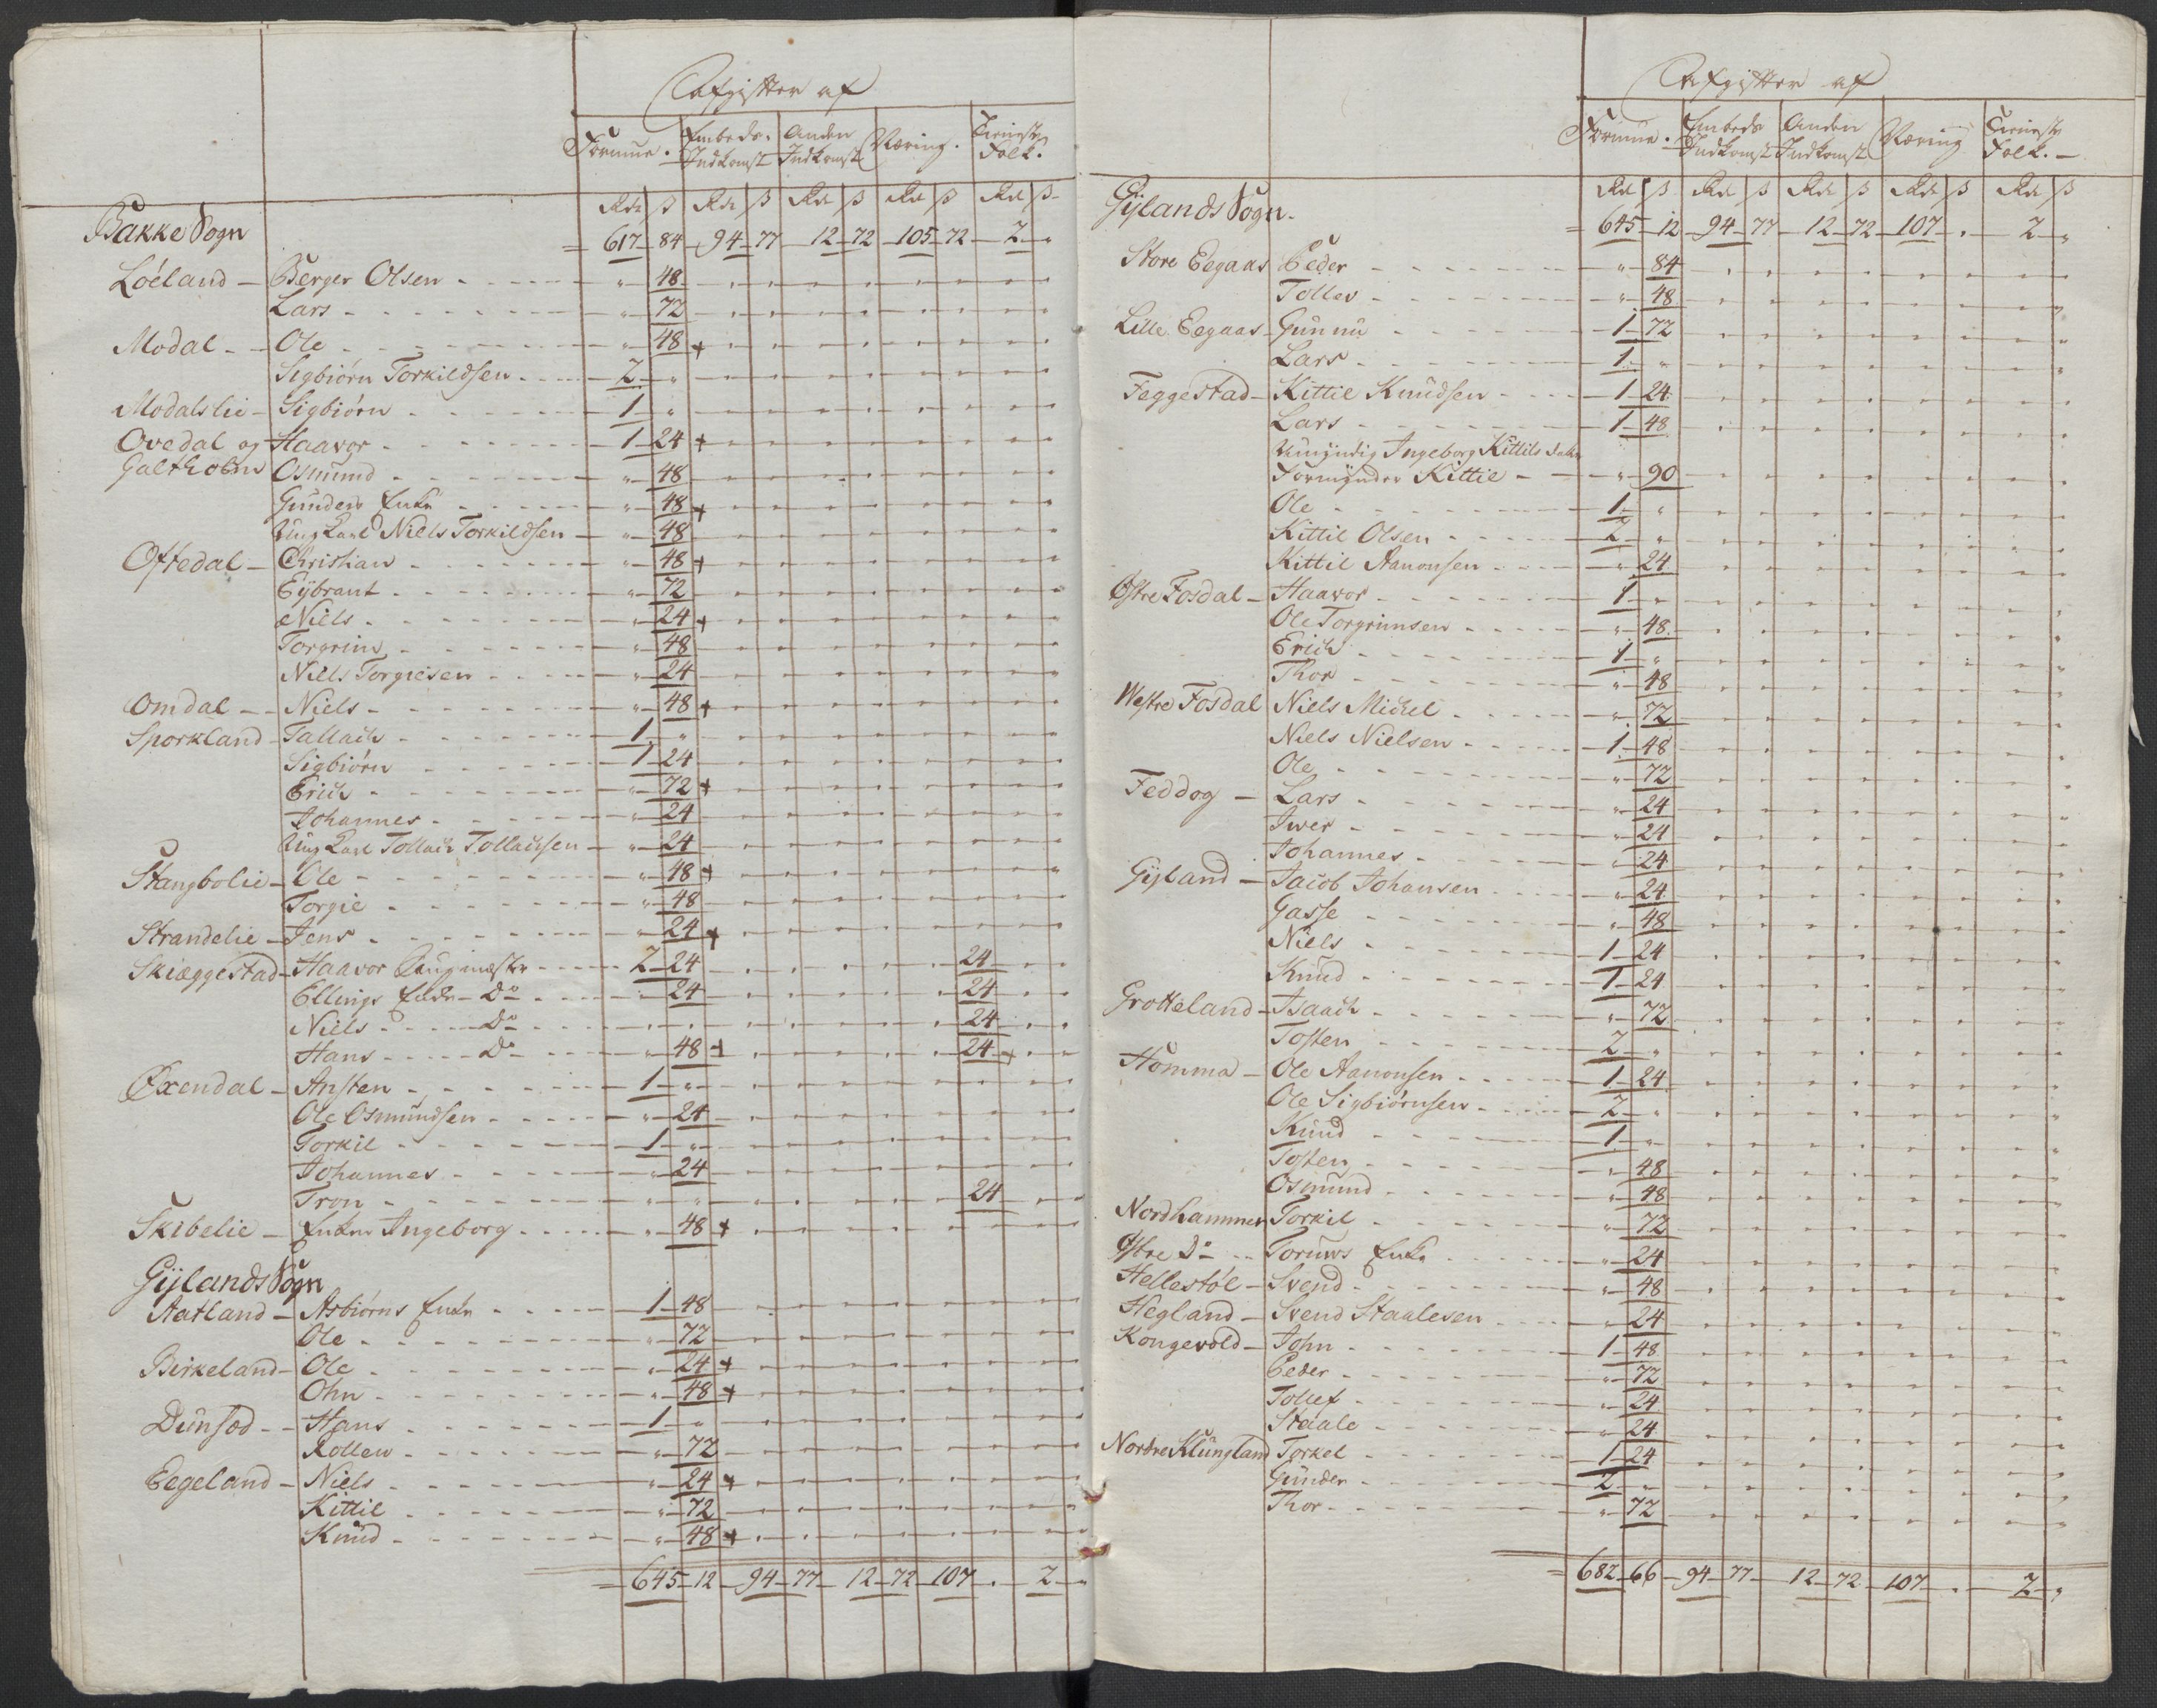 Afgifter af
Formue. Embeds. Indkomst Anden Indkomst Næring. Tieneste Folk.
Rdr ß Rdr ß Rdr ß Rdr ß Rdr ß
Bakke Sogn = 617 84 94 77 12 72 105 72 2 "
Löeland - Berger Olsen " 48
Lars " 72
Modal - Ole " 48 +
Sigbiörn Torkildsen 2 "
Modalslie - Sigbiörn 1 "
Ovedal og Haavor 1 24 +
Galtholm Osmund " 48
Gunders Enke " 48 +
Ung Karl Niels Torkildsen " 48
Oftedal - Christian " 48 +
Eÿbrant " 72
Niels " 24 +
Torgrim " 48
Niels Torgiesen " 24
Omdal - Niels " 48 +
Sporkland - Tallach 1 "
Sigbiörn 1 24
Erich " 72 +
Johannes " 24
Ung Karl Tollach Tollachsen " 24
Stangbolie - Ole " 48 +
Torgie " 48
Strandelie - Jens " 24 +
Skiæggestad - Haavor Laugmæster 2 24 24
Ellings Enke - Do " 24 24
Niels - Do " " 24
Hans - Do " 48 + 24 +
Øxendal - Ansten 1 "
Ole Osmundsen " 24
Torkil 1 "
Johannes " 24
Tron " " 24
Skibelie - Enken Ingeborg " 48 +
Gÿlands Sogn
Aatland - Asbiörns Enke 1 48
Ole " 72
Birkeland - Ole " 24 +
Ohn " 48 +
Dunsæd - Hans 1 "
Rollen " 72
Eegeland - Niels " 24 +
Kittil " 72
Knud " 48 +
= 645 12 94 77 12 72 107 " 2 "
Afgifter af
Formue. Embeds Indkomst Anden Indkomst Næring Tieneste Folk.
Rdr ß Rdr ß Rdr ß Rdr ß Rdr ß
Gÿlands Sogn. = 645 12 94 77 12 72 107 " 2 "
Store Eegaas Peder " 84
Tollev " 48
Lille Eegaas - Gunnu 1 72
Lars 1 "
Feggestad - Kittil Knudsen 1 24
Lars 1 48
Umÿndig Ingeborg Kittils datter
Formÿnder Kittil " 90
Ole 1 "
Kittil Olsen 2 "
Kittil Aanonsen " 24
Østre Fosdal - Haavor 1 "
Ole Torgrimsen " 48
Erich 1 "
Thor " 48
Westre Fosdal Niels Michel " 72
Niels Nielsen 1 48
Ole " 72
Feddog - Lars " 24
Iver " 24
Johannes " 24
Gÿland - Jacob Johansen " 24
Gasse " 48
Niels 1 24
Knud 1 24
Grotteland - Isaach " 72
Tosten 2 "
Homma - Ole Aanonsen 1 24
Ole Sigbiörnsen 2 "
Knud 1 "
Tosten " 48
Osmund " 48
Nordhammer Torkil " 72
Østre Do - Toruws Enke " 24
Hellestöl - Svend " 48
Hegland - Svend Staalesen " 24
Kongevold - John 1 48
Peder " 72
Tollef " 24
Staale " 24
Nordre Klungland Torkel 1 24
Gunder 2 "
Thor " 72
= 682 66 94 77 12 72 107 " 2 "